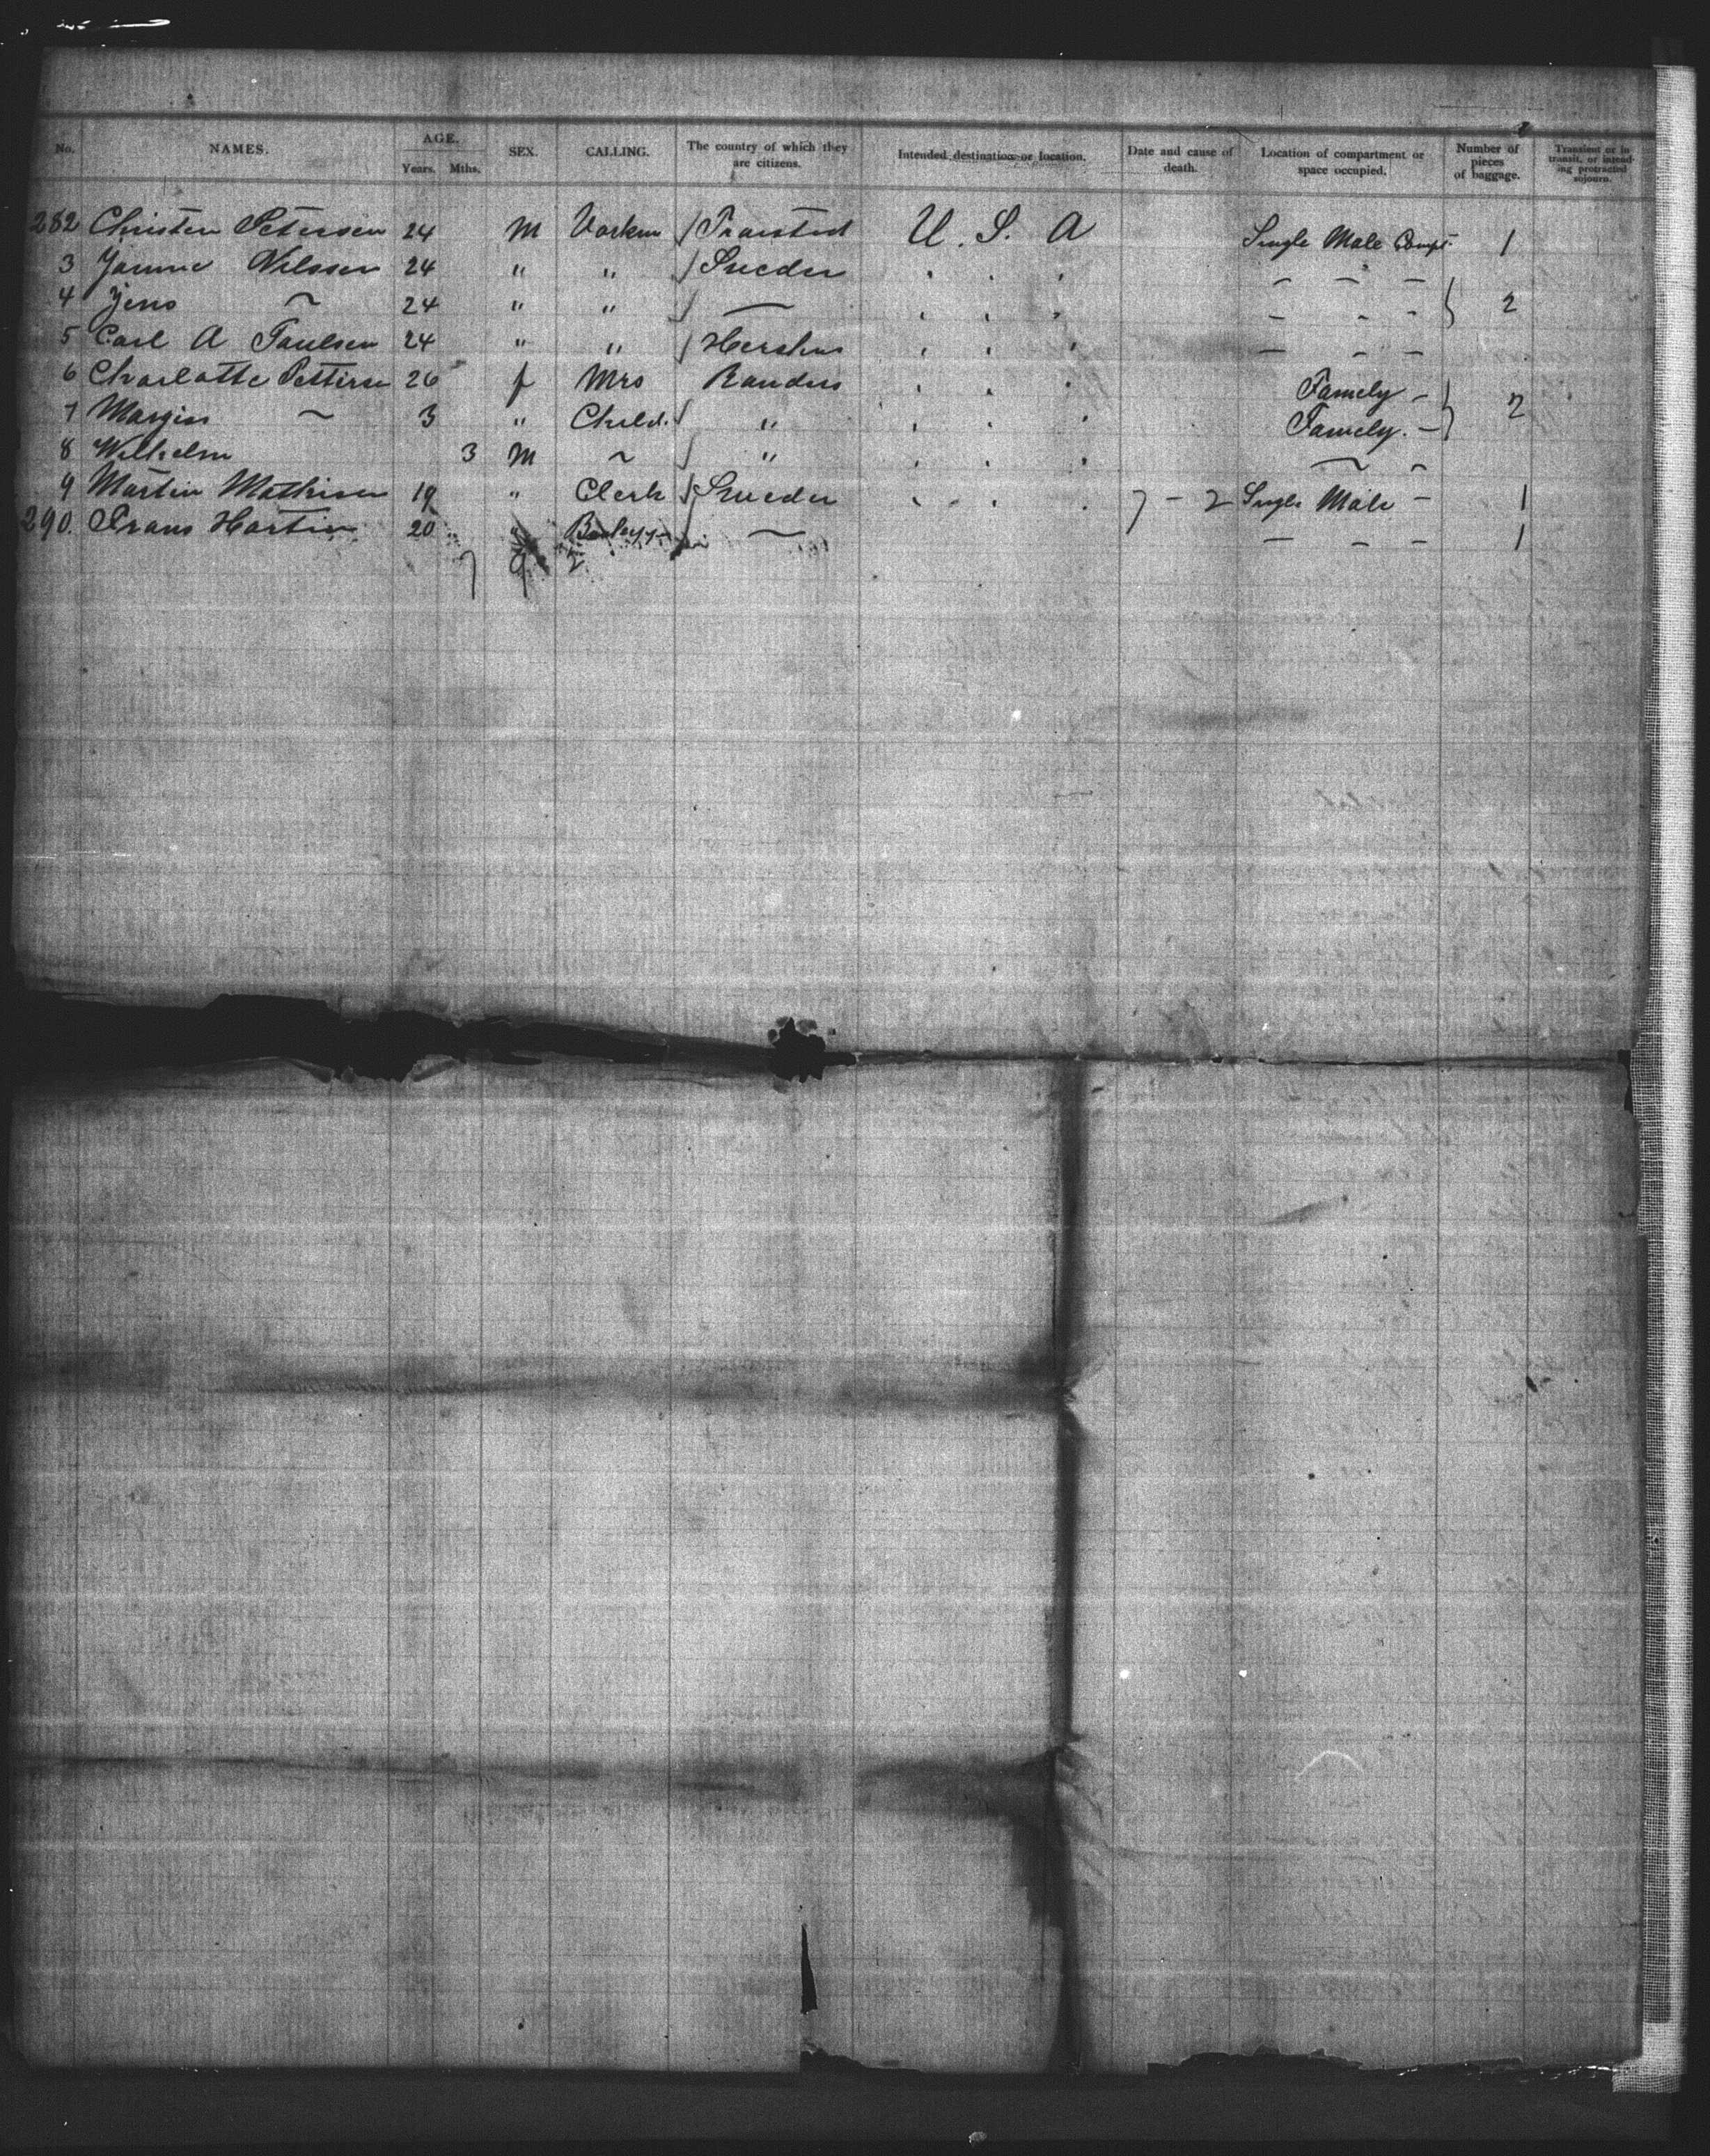 No. NAMES. AGE. Years. Mths. SEX. CALLING. The country of which they are citizens. Intended destination or location. Date and cause of death. Location of compartment or space occupied. Number of pieces of baggage. Transient or in transit, or intending protracted sojourn.
282 Christen Petersen 24 M U. S. A Single Male Compt 1
3 Nilssen 24 " " Sweden
4 Jens ~ 24 " " — 2
5 Carl A Paulsen 24 " "
6 Charlotte Petterse 26 f Mrs Randers Famely -
7 ~ 3 " Child. " Famely. - 2
8 Wilhelm 3 M ~ "
9 Martin Mathisen 19 " Clerk Sweden 7 - 2 Single Male - 1
290. Frans Hartin 20 " — 1
7 9 2